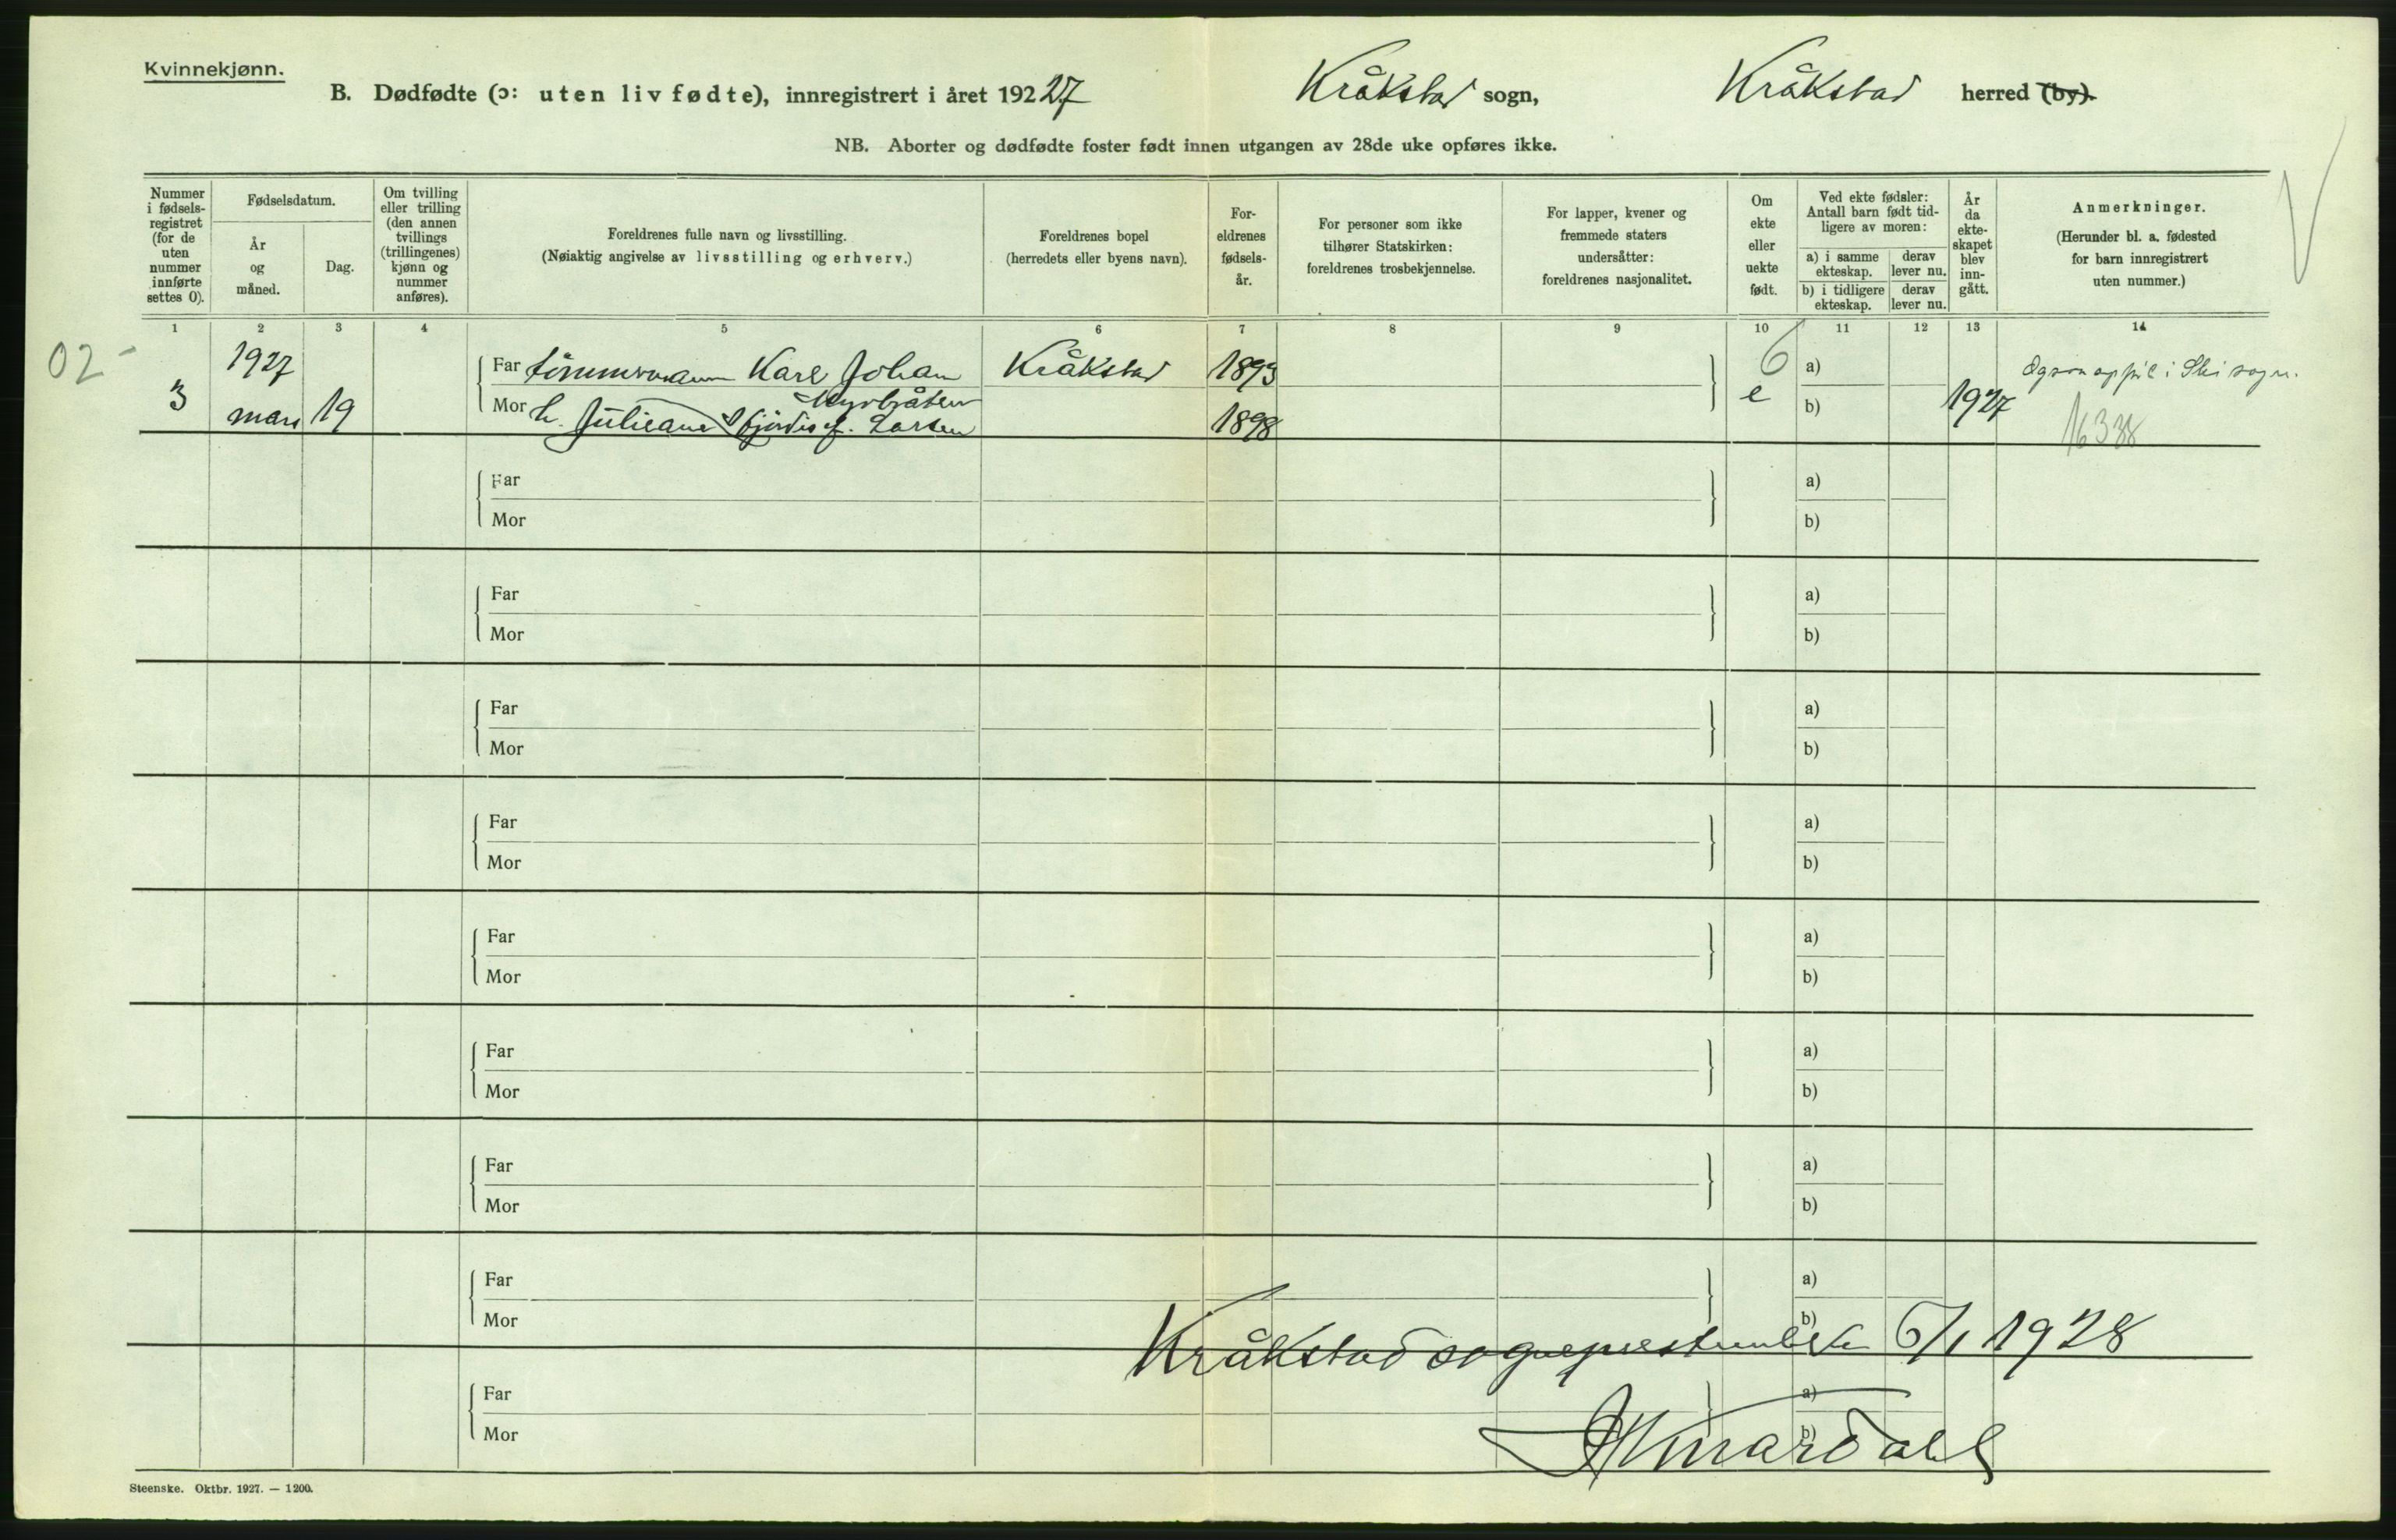 Kvinnekjønn.
B. Dødfødte (ɔ: uten liv fødte), innregistrert i året 192 27 Kråkstad sogn, Kråkstad herred (by).
NB. Aborter og dødfødte foster født innen utgangen av 28de uke opføres ikke.
Nummer i fødsels-registret (for de uten nummer innførte settes 0).
Fødselsdatum.
År og måned.
Dag.
Om tvilling eller trilling (den annen tvillings (trillingenes) kjønn og nummer anføres).
Foreldrenes fulle navn og livsstilling.
(Nøiaktig angivelse av livsstilling og erhverv.)
Foreldrenes bopel
(herredets eller byens navn).
For-eldrenes fødsels-år.
For personer som ikke tilhører Statskirken: foreldrenes trosbekjennelse.
For lapper, kvener og fremmede staters undersåtter: foreldrenes nasjonalitet.
Om ekte eller uekte født.
Ved ekte fødsler: Antall barn født tid-ligere av moren:
a) i samme ekteskap. derav lever nu.
b) i tidligere ekteskap. derav lever nu.
År da ekte-skapet blev inn-gått.
Anmerkninger.
(Herunder bl. a. fødested for barn innregistrert uten nummer.)
1 2 3 4 5 6 7 8 9 10 11 12 13 14
02 -
3 1927 mars 19
Far tömmermann Karl Johan Myrbråten Kråkstad 1893
Mor h. Juliane Hjördis f. Larsen 1898
6 e a) b) 1927
i Ski sogn.
16338
Far a)
Mor b)
Far a)
Mor b)
Far a)
Mor b)
Far a)
Mor b)
Far a)
Mor b)
Far a)
Mor b)
Far a)
Mor b)
Far a)
Mor b)
Kråkstad sogneprestembede 6/1 1928
Far a)
Mor b)
Steenske. Oktbr. 1927. — 1200.